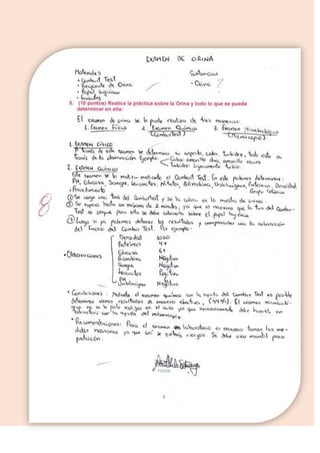 EXAMEN DE ORINA
Materiales
Sustancias
• Combur Test
• Recipiente de Orina
• Orina
• Papel higiénico
• Guantes
5. (10 puntos) Realice la práctica sobre la Orina y todo lo que se pueda
determinar en ella:
El examen de orina se lo puede realizar de tres maneras:
1. Examen Físico 2. Examen Químico 3. Examen Microbiológico
(Combur Test) (Microscopio)
1. EXAMEN FÍSICO
A través de este examen se determina su aspecto, color, turbidez, todo esto a
través de la observación Ejemplo:
Color: amarillo
Turbidez: Ligeramente turbio.
2. EXAMEN QUÍMICO
Este examen se lo realiza mediante el Combur Test. En este podemos determinar:
PH, Glucosa, Sangre, Leucocitos, Nitritos, Bilirrubina, Urobilinógeno, Proteínas, Densidad
• Procedimiento
① Se coge una tira del Combur Test y se la coloca en la muestra de orina
② Se espera hasta un máximo de 2 minutos, ya que el reactivo que la tira del Combur
Test se seque para ello se debe colocarlo sobre el papel higiénico
③ Luego ya podemos obtener los resultados y compararlos con la coloración
del frasco del Combur Test. Por ejemplo:
8
• Observaciones
Densidad
Proteínas
Glucosa
Bilirrubina Negativo
Sangre Negativo
Leucocitos Positivo
PM 6
Urobilinógeno Negativo
• Conclusiones: Mediante el examen químico con la ayuda del Combur Test es posible
determinar varios resultados de manera efectiva, (99%). El examen microbioló-
gico no se lo pudo realizar en el aula ya que necesariamente debe hacerlo en
laboratorio con la ayuda del microscopio
• Recomendaciones: Para el examen de laboratorio es necesario tomar las me-
didas necesarias ya que así se evitará riesgos. Se debe usar mandil para
protección.